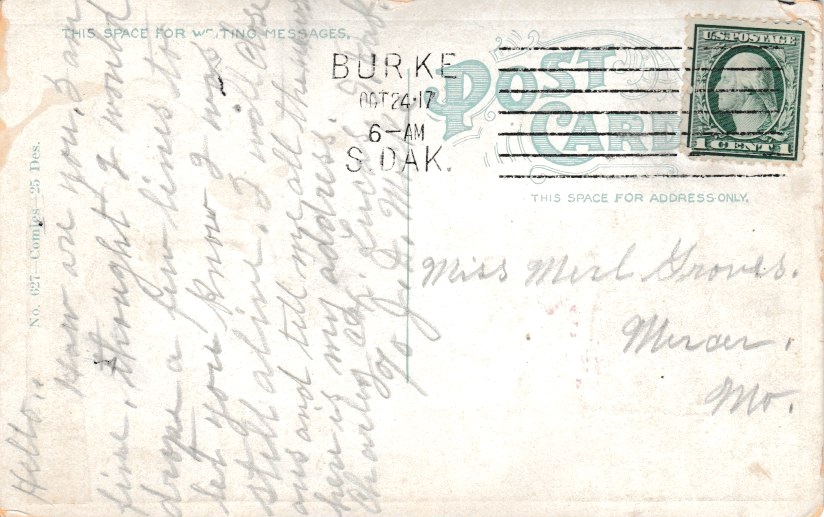 THIS SPACE FOR WRITING MESSAGES.
POST
CARD
THIS SPACE FOR ADDRESS ONLY.
No. 627—Comics—25 Des.
BURKE
OCT 24·17
6—AM
S.DAK.
U.S. POSTAGE
1 CENT 1
Hello..
How are you, I am
fine, thought I would
drope a few lines to
let you know I was
still alive, I will close
ans and tell me all the news
here is my address.
Charley
Miss Merl Groves.
Mercer,
Mo.